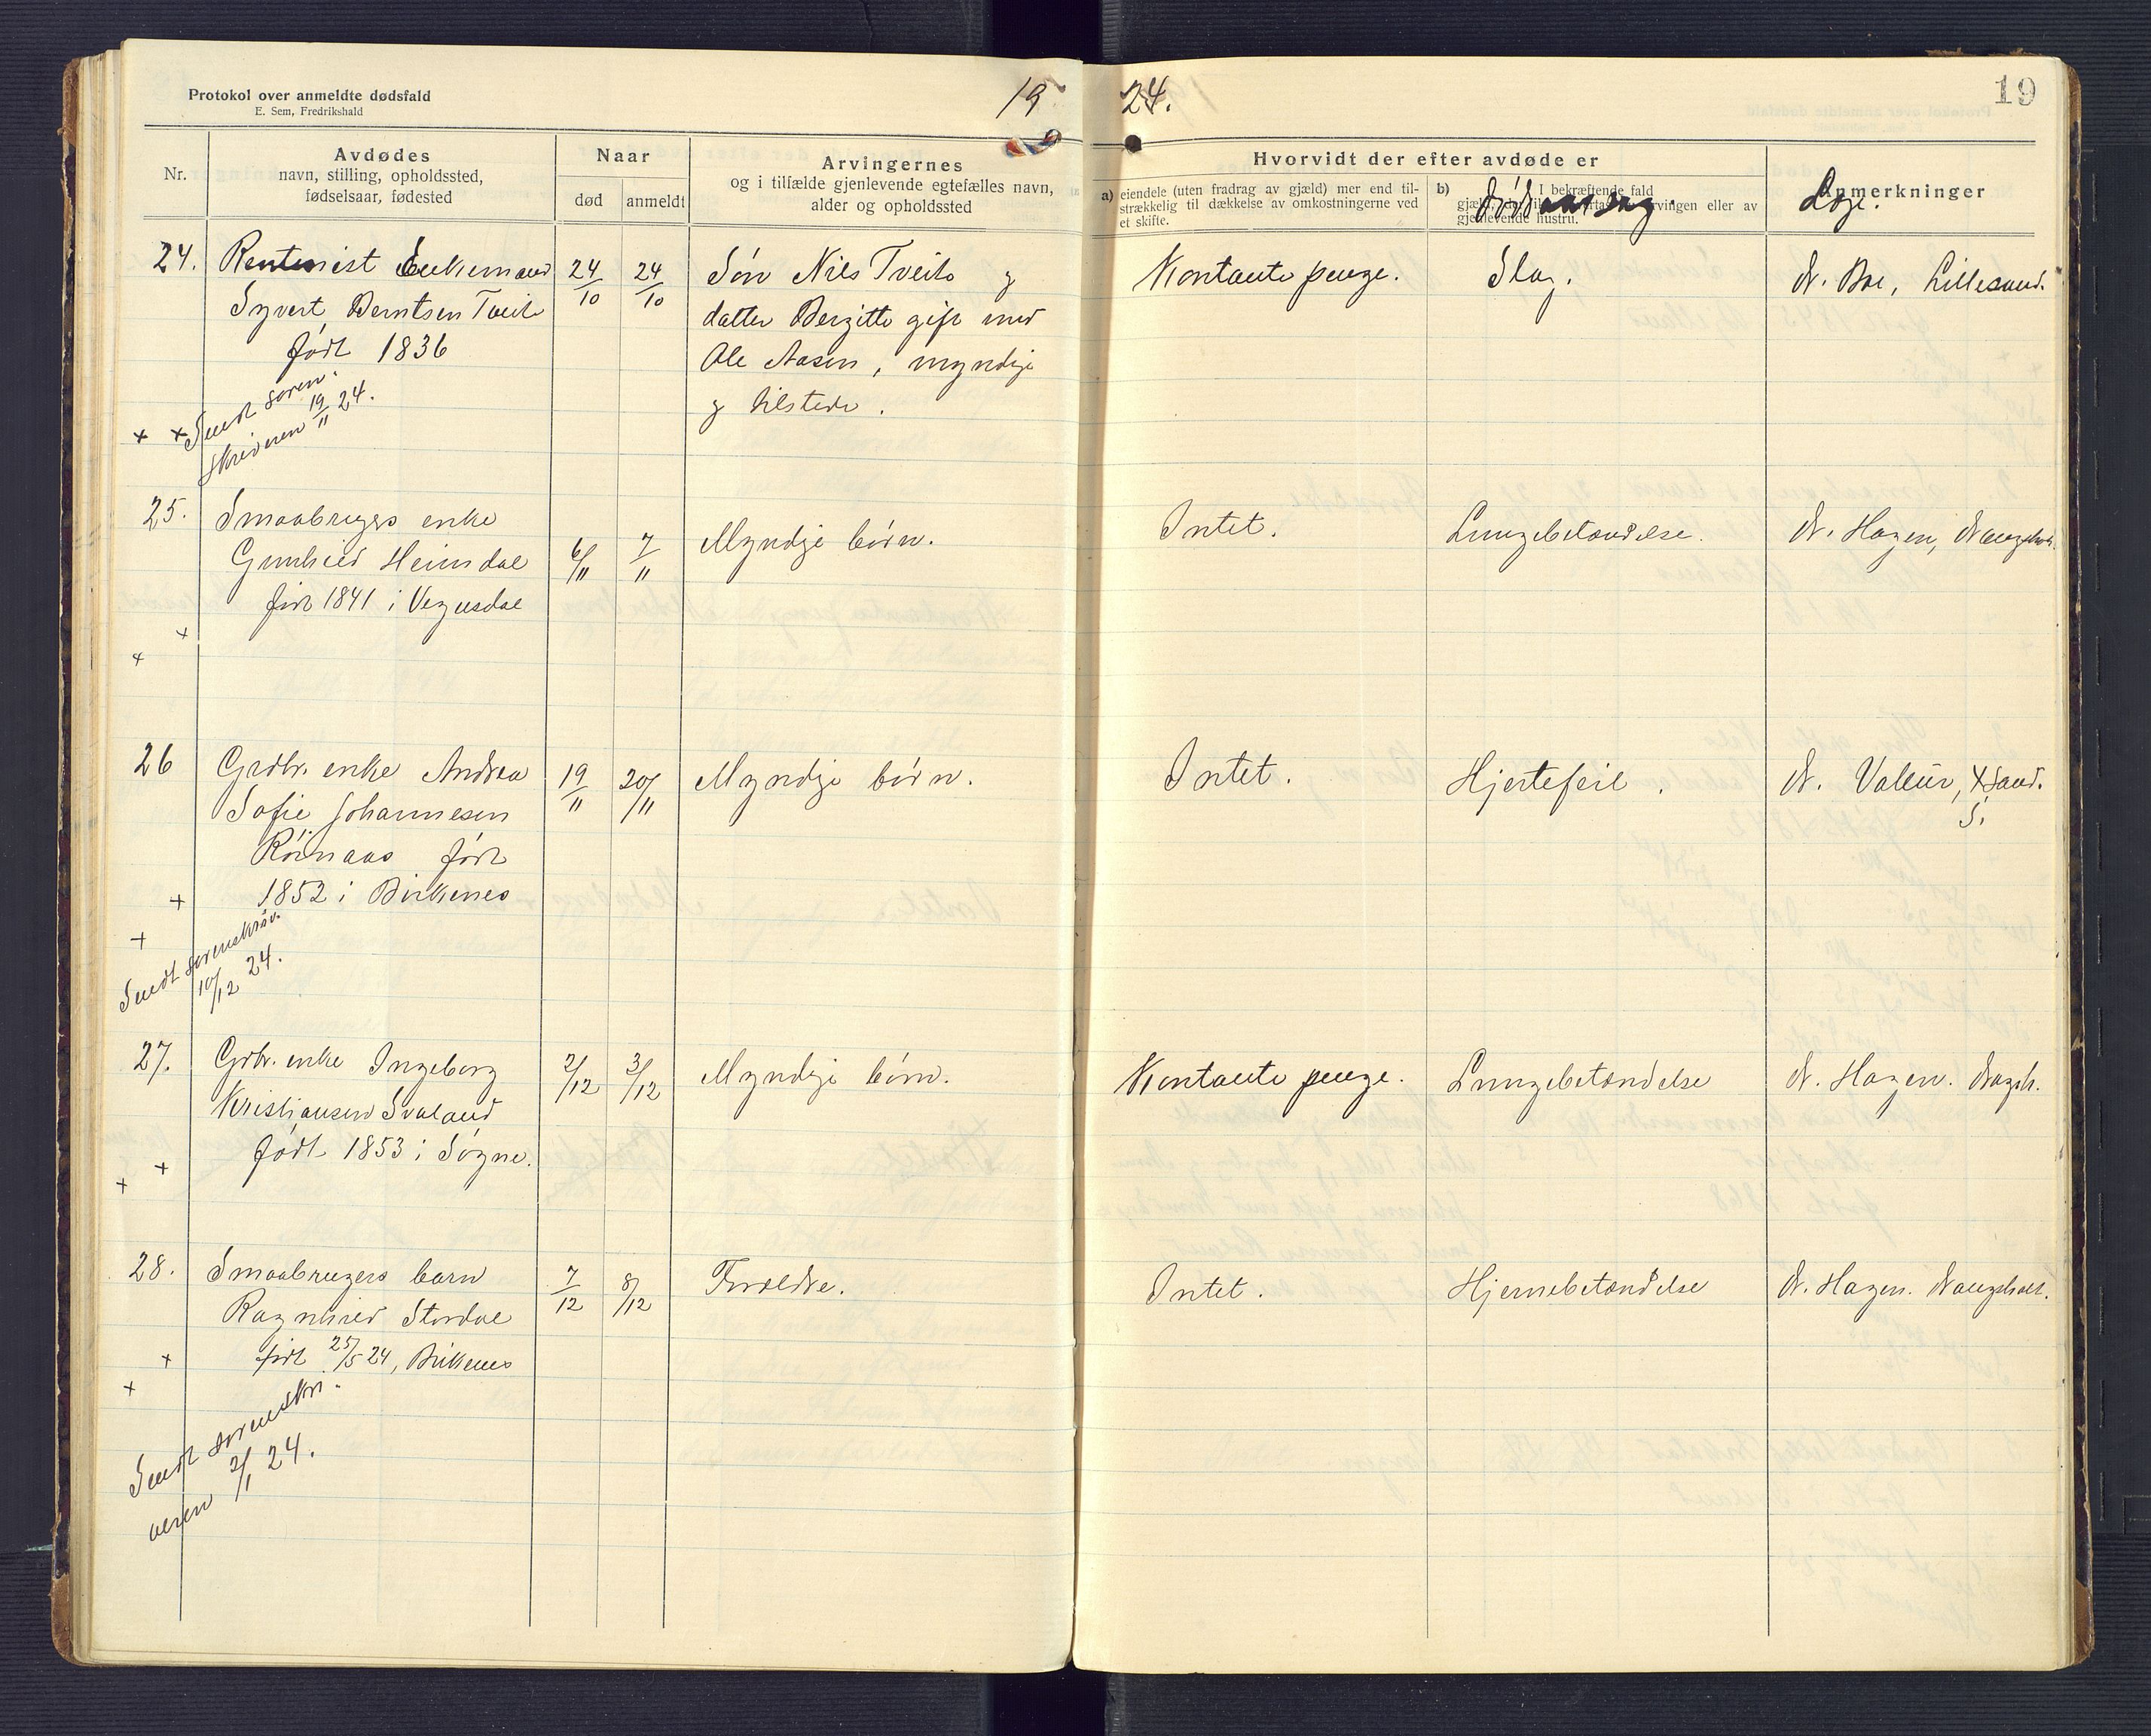 Protokol over anmeldte dødsfald
E. Sem, Fredrikshald
19 24.
19
Nr.
Avdødes
navn, stilling, opholdssted,
fødselsaar, fødested
Naar
død
anmeldt
Arvingernes
og i tilfælde gjenlevende egtefælles navn,
alder og opholdssted
Hvorvidt der efter avdøde er
a) eiendele (uten fradrag av gjæld) mer end til-
strækkelig til dækkelse av omkostningerne ved
et skifte.
b) I bekræftende fald
arvingen eller av
gjenlevende hustru.
Dødsaarsag.
Anmerkninger
Læge.
24.
Rentenist Enkemand
Syvert Berntsen Tveite
født 1836
24/10
24/10
Søn Nils Tveite og
datter Bergitte gift med
Ole Aasen, myndige
og tilstede.
Kontante penge.
Slag.
Dr. Boe, Lillesand.
+ + Sendt soren-
skriveren 19/11 24.
25.
Smaabrugers enke
Gunhild Heimdal
født 1841 i Vegusdal
6/11
7/11
Myndige børn.
Intet.
Lungebetændelse.
Dr. Hagen,
+
+
26
Grdbr. enke Andrea
Sofie Johannesen
født
1852 i Birkenes
19/11
20/11
Myndige børn.
Intet.
Hjertefeil.
Dr. Valeur, Krsand.
S.
+
+
Sendt sorenskriv.
10/12 24.
27.
Grbr. enke Ingeborg
Kristiansen Svaland
født 1853 i Søgne.
2/12
3/12
Myndige børn.
Kontante penge.
Lungebetændelse
Dr. Hagen.
+ +
28.
Smaabrugers barn
Ragnhild Stordal
født 25/5 24, Birkenes
7/12
8/12
Forældre.
Intet.
Hjernebetændelse
Dr. Hagen.
+
+
Sendt sorenskri-
veren 2/1 24.